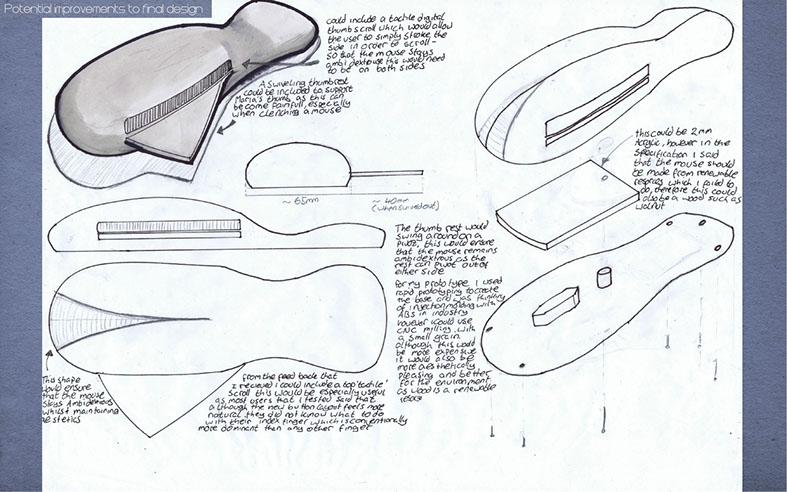 Potential improvements to final design
could include a tactile digital
thumbscroll which would allow
the user to simply stroke the
side in order to scroll-
so that the mouse stays
ambidextrous this would need
to be on both sides
A swiveling thumbrest
could be included to support
Maria's thumb as this can
become painfull, especially
when clenching a mouse
~ 65mm
~ 40mm
(when swived out)
this could be 2mm
Acrylic, however in the
specification I said
that the mouse should
be made from renewable
which I failed to
do, therefore this could
also be a wood such as
walnut
The thumb rest would
swing around on a
pivot, this would ensure
that the mouse remains
ambidextrous as the
rest can pivot out of
either side
for my prototype I used
rapid prototyping to create
the base and was thinking
of injection molding with
ABS in industry
however I could use
CNC milling with
a small grain
although this would
be more expensive
it would also be
more aesthetically
pleasing and better
for the environment
as wood is a renewable
This shape
would ensure
that the mouse
stays
whilst maintaining
from the feed back that
I recieved I could include a top 'tactile'
Scroll this would be especially useful
as most users that I tested said that
although the new button layout feels more
natural they did not know what to do
with their index finger which is conventionally
more dominant than any other finger